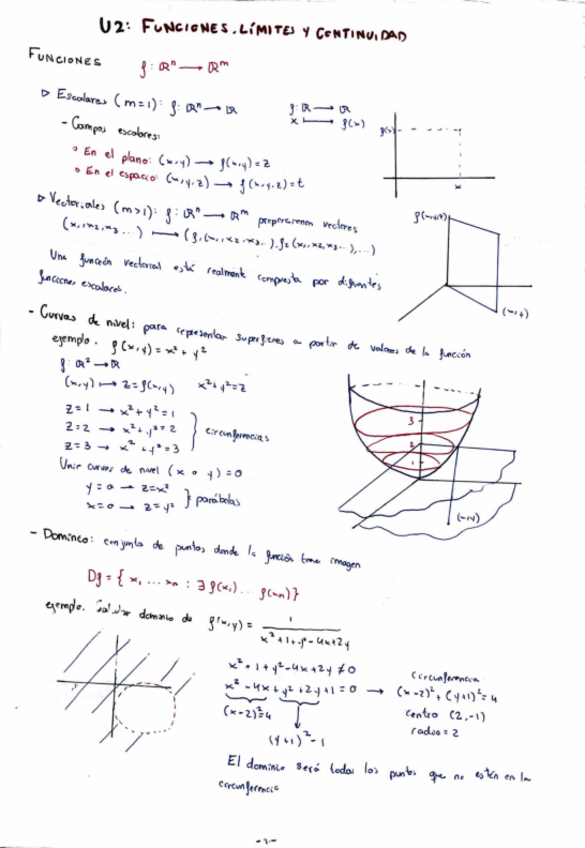 U2: FUNCIONES, LÍMITES Y CONTINUIDAD
FUNCIONES
f: ℝⁿ → ℝᵐ
▷ Escalares (m=1): f: ℝⁿ → ℝ
f: ℝ → ℝ
x ⟼ f(x)
- Campos escalares:
° En el plano: (x,y) → f(x,y) = z
° En el espacio: (x,y,z) → f(x,y,z) = t
f(x)
x
▷ Vectoriales (m>1): f: ℝⁿ → ℝᵐ proporcionan vectores
(x₁,x₂,x₃...) ⟼ (f₁(x₁,x₂,x₃...), f₂(x₁,x₂,x₃...),...)
Una función vectorial está realmente compuesta por diferentes
funciones escalares.
f(x,y)
(x,y)
- Curvas de nivel: para representar superficies a partir de valores de la función
ejemplo. f(x,y) = x² + y²
f: ℝ² → ℝ
(x,y) ⟼ z = f(x,y) x² + y² = z
z=1 → x² + y² = 1
z=2 → x² + y² = 2
z=3 → x² + y² = 3
circunferencias
Unir curvas de nivel (x o y) = 0
y=0 → z=x²
x=0 → z=y²
parábolas
3
2
1
(x,y)
- Dominio: conjunto de puntos donde la función tiene imagen
Df = { x₁ ... xₙ : ∃ f(x₁) ... f(xₙ)}
ejemplo. Calcular dominio de f(x,y) = 1 / (x²+1+y²-4x+2y)
x² + 1 + y² - 4x + 2y ≠ 0
x² - 4x + y² + 2y + 1 = 0 →
(x-2)²-4
(y+1)² - 1
Circunferencia
(x-2)² + (y+1)² = 4
centro (2,-1)
radio = 2
El dominio será todos los puntos que no estén en la
circunferencia
-1-